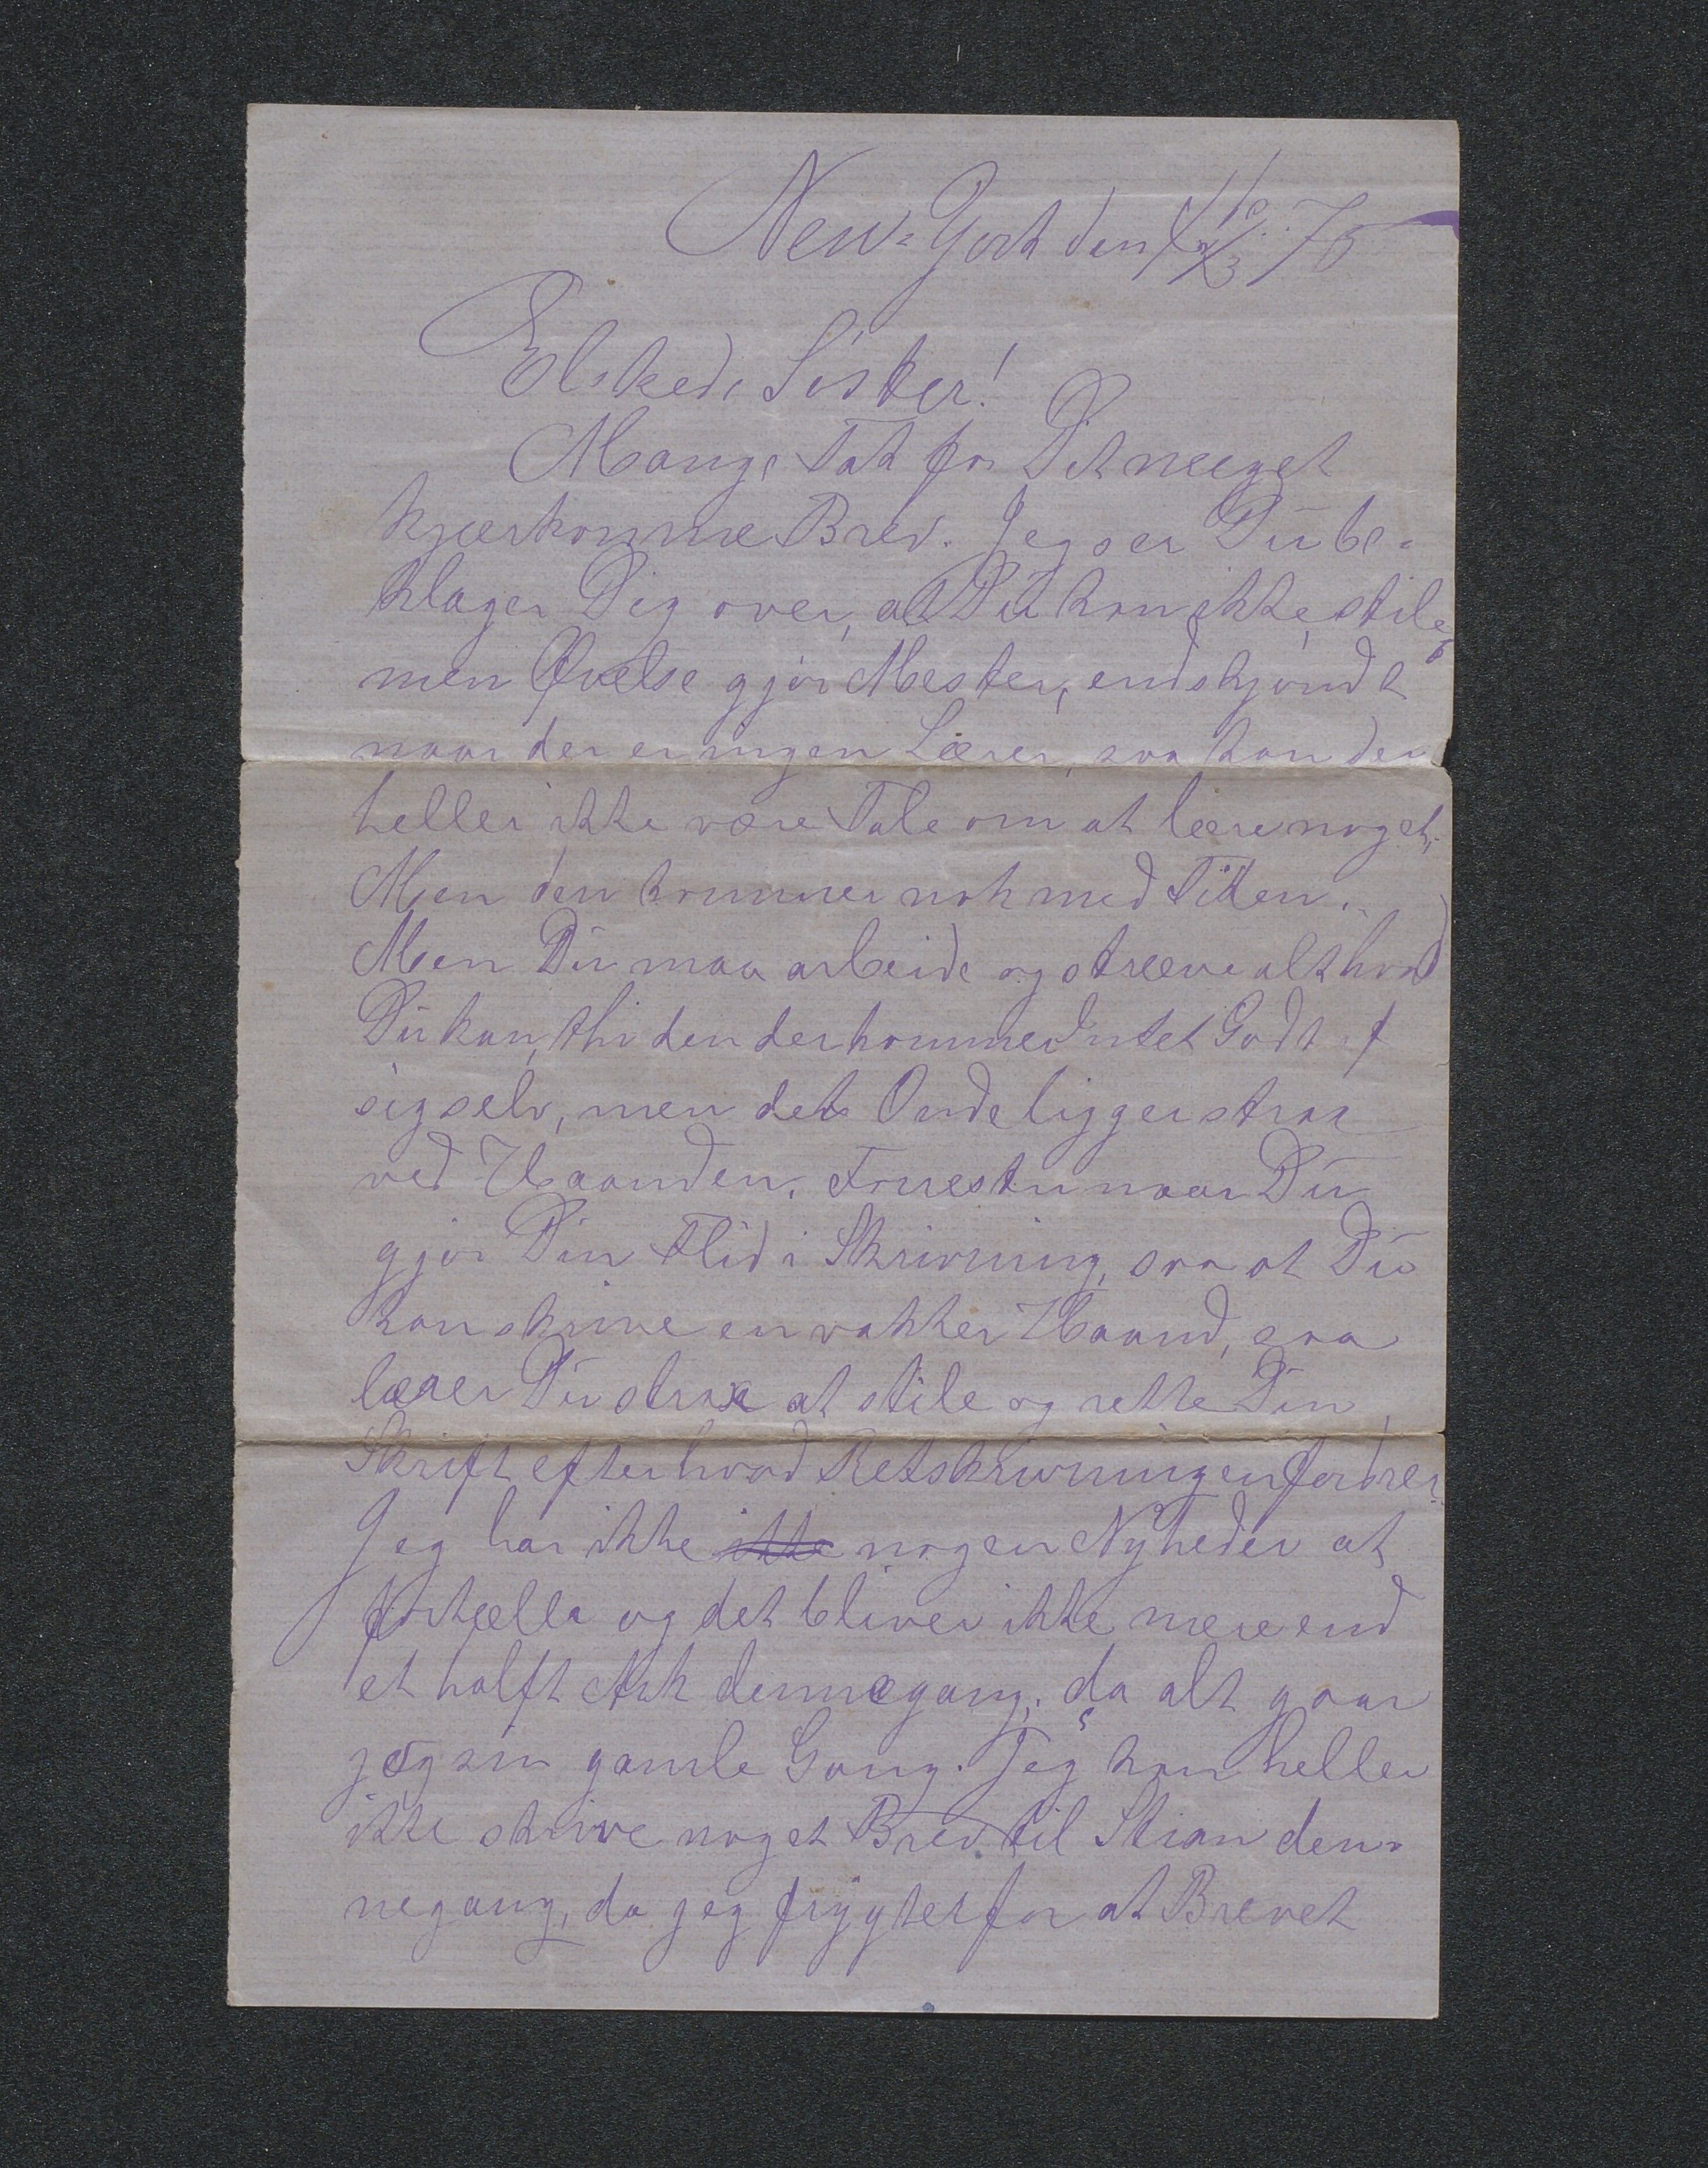 New-York den 76
Elskede Söster!
Mange Tak for Dit meeget
kjærkomne Brev. Jeg ser Du be-
klager Dig over, at Du kan ikke stile,
men Övelse gjör Mester, endskjöndt
naar der er ingen Lærer, saa kan der
heller ikke være Tale om at lære noget,
Men den kommer nok med Tiden.
Men Du maa arbeide og stræve alt hvad
Du kan, thi den der kommer intet Godt af
sig selv, men det Onde ligger strax
ved Haanden. Forresten naar Du
gjör Din Flid i Skrivning, saa at Du
kan skrive en vakker Haand, saa
lærer Du strax at stile og rette Din
Skrift efter hvad Retskrivningen fordrer.
Jeg har ikke ikke nogen Nyheder at
fortælle og det bliver ikke mere end
et halft Ark dennegang, da alt gaar
jog sin gamle Gang. Jeg kan heller
ikke skrive noget Brev til Stian den-
negang, da jeg frygter for at Brevet